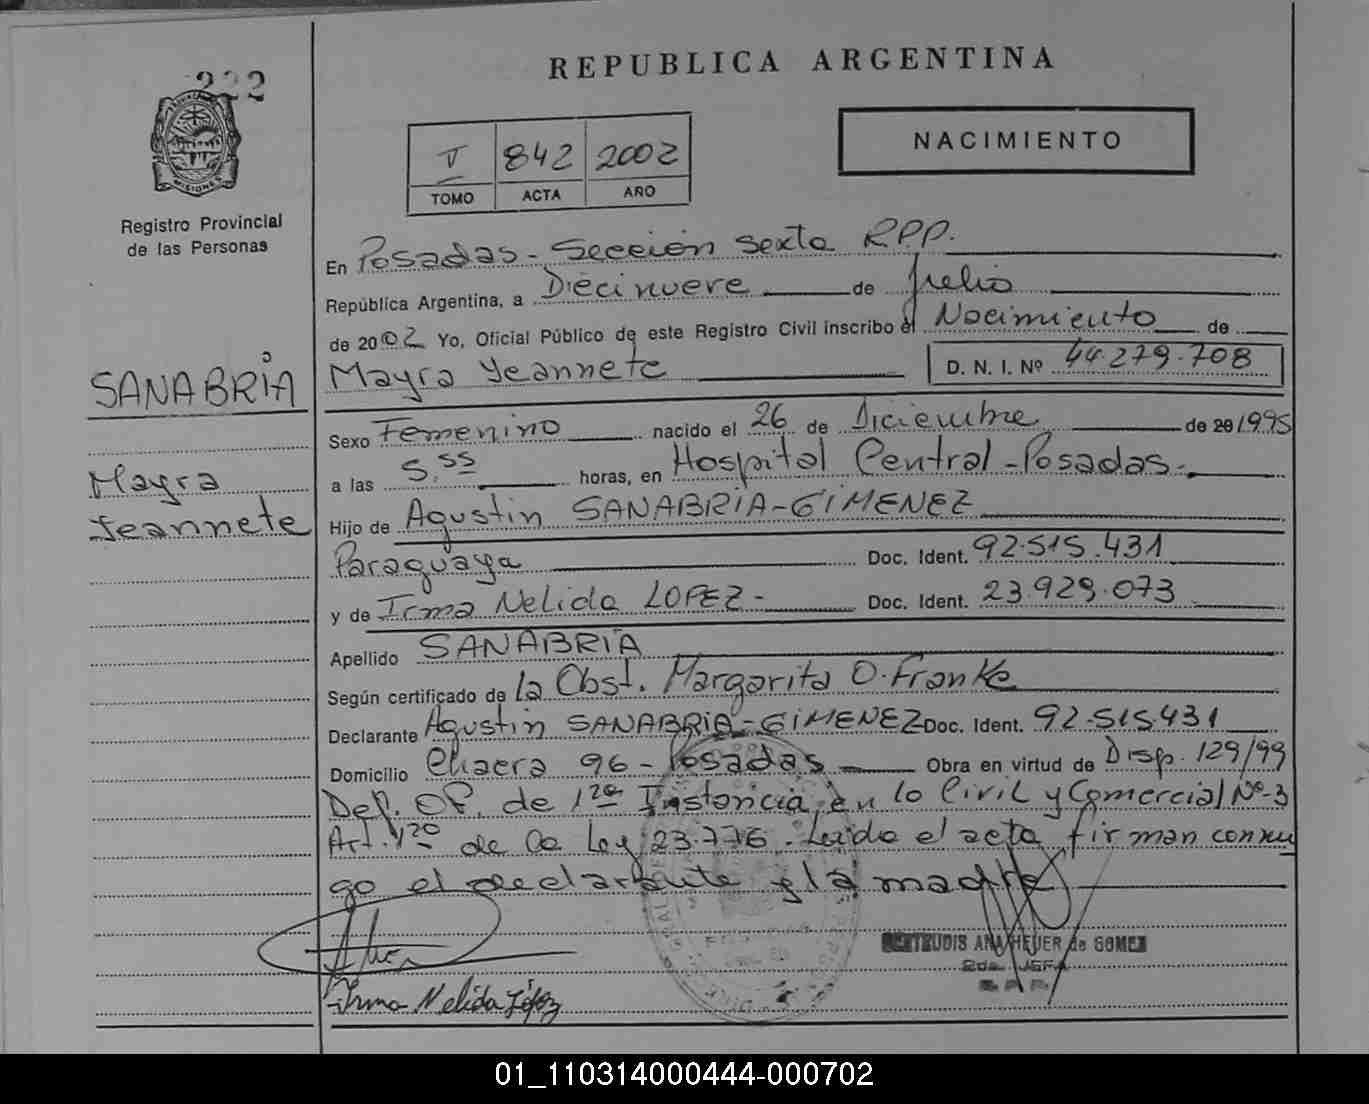 222
MISIONES
Registro Provincial
de las Personas
REPUBLICA ARGENTINA
V 842 2002
TOMO ACTA AÑO
NACIMIENTO
En Posadas - Sección Sexta R.P.P.
República Argentina, a Diecinueve de Julio
de 2002 Yo, Oficial Público de este Registro Civil inscribo el Nacimiento de
Mayra Yeannete D. N. I. Nº 44.279.708
SANABRIA
Mayra
Yeannete
Sexo Femenino nacido el 26 de Diciembre de 20 1995
a las 5.55 horas, en Hospital Central - Posadas -
Hijo de Agustin SANABRIA - GIMENEZ
Paraguaya Doc. Ident. 92.515.431
y de Irma Nelida LOPEZ - Doc. Ident. 23.929.073
Apellido SANABRIA
Según certificado de la Obst. Margarita O. Franke
Declarante Agustin SANABRIA - GIMENEZ Doc. Ident. 92.515.431
Domicilio Chacra 96 - Posadas Obra en virtud de Disp. 129/99
Def. Of. de 1ra Instancia en lo Civil y Comercial Nº 3
Art. 1ro de la Ley 23.776. Leido el acta, firman conmi
go el declarante y la madre
GERTRUDIS ANA HEUER de GOMEZ
2da. JEFA
R. P. P.
Irma Nelida López
01_110314000444-000702